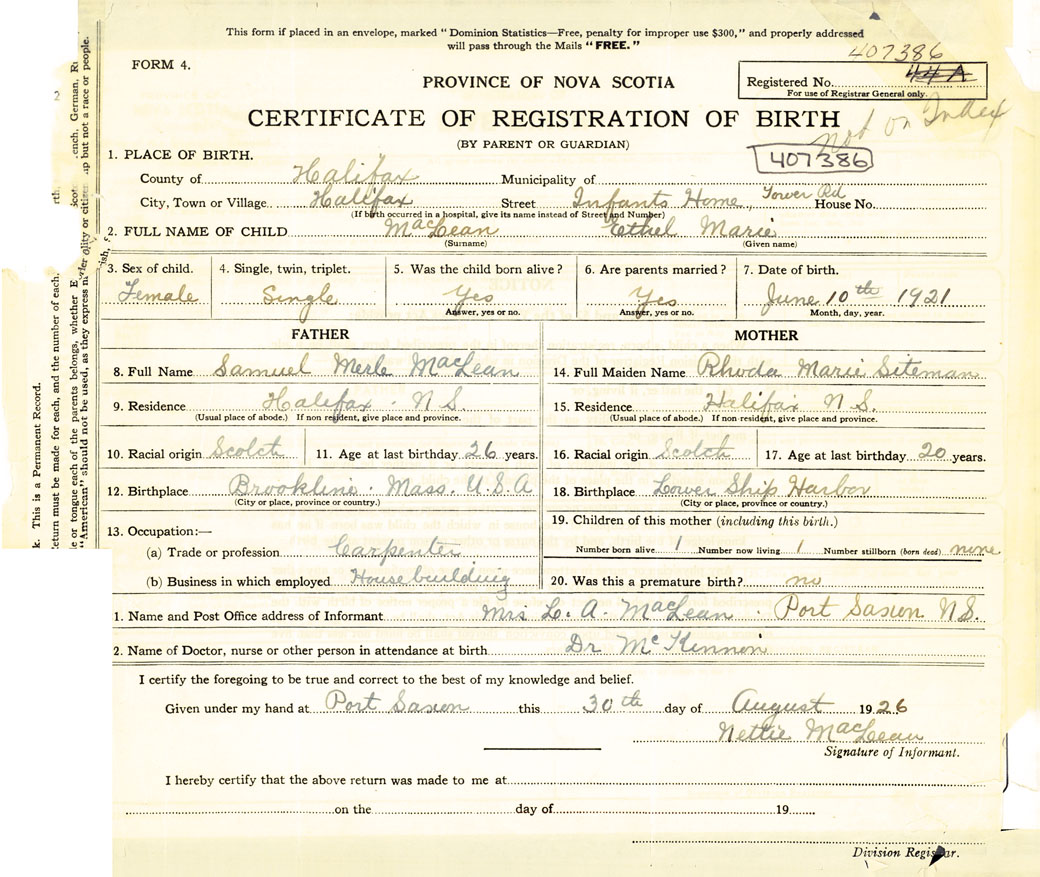 This form if placed in an envelope, marked "Dominion Statistics—Free, penalty for improper use $300," and properly addressed
will pass through the Mails "FREE."
407386
FORM 4.
PROVINCE OF NOVA SCOTIA
Registered No. 44 A
For use of Registrar General only.
CERTIFICATE OF REGISTRATION OF BIRTH
not on Index
(BY PARENT OR GUARDIAN)
407386
1. PLACE OF BIRTH.
County of Halifax Municipality of
City, Town or Village Halifax Street Infants Home, Tower Rd House No.
(If birth occurred in a hospital, give its name instead of Street and Number)
2. FULL NAME OF CHILD MacLean Ethel Marie
(Surname) (Given name)
3. Sex of child. 4. Single, twin, triplet. 5. Was the child born alive? 6. Are parents married? 7. Date of birth.
Female Single Yes Yes June 10th 1921
Answer, yes or no. Answer, yes or no. Month, day, year.
FATHER MOTHER
8. Full Name Samuel Merle MacLean 14. Full Maiden Name Rhoda Marie Siteman
9. Residence Halifax. N S. 15. Residence Halifax N S.
(Usual place of abode.) If non resident, give place and province. (Usual place of abode.) If non resident, give place and province.
10. Racial origin Scotch 11. Age at last birthday 26 years. 16. Racial origin Scotch 17. Age at last birthday 20 years.
12. Birthplace Brookline. Mass. U.S.A 18. Birthplace Lower Ship Harbor
(City or place, province or country.) (City or place, province or country.)
13. Occupation:— 19. Children of this mother (including this birth.)
(a) Trade or profession Carpenter Number born alive 1 Number now living 1 Number stillborn (born dead) none
(b) Business in which employed Housebuilding 20. Was this a premature birth? no
1. Name and Post Office address of Informant Mrs L. A. MacLean. Port Saxon N.S.
2. Name of Doctor, nurse or other person in attendance at birth Dr McKinnon
I certify the foregoing to be true and correct to the best of my knowledge and belief.
Given under my hand at Port Saxon this 30th day of August 1926
Nettie MacLean
Signature of Informant.
I hereby certify that the above return was made to me at
on the day of 19
Division Registrar.
k. This is a Permanent Record.
eturn must be made for each, and the number of each.
e or tongue each of the parents belongs, whether
"American" should not be used, as they express
ench, German,
up but not a race or people.